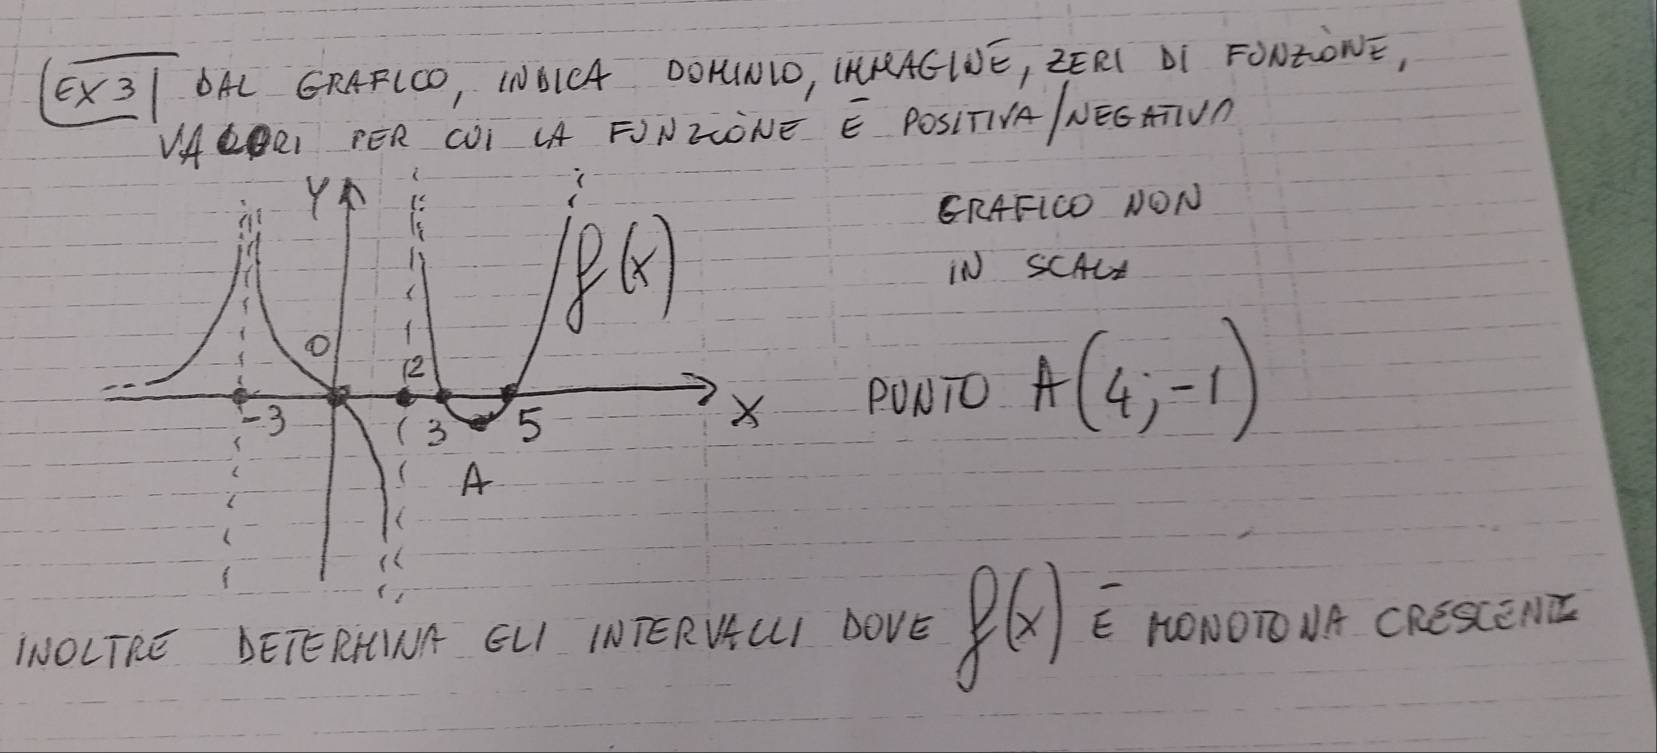 EX 3 DAL GRAFICO, INDICA DOMINIO, IMMAGINE, ZERI DI FUNZIONE,
VALORI PER CUI LA FUNZIONE È POSITIVA/NEGATIVA
Y
f(x)
GRAFICO NON
IN SCALA
0
2
-3
3
5
X
A
PUNTO A(4;-1)
INOLTRE DETERMINA GLI INTERVALLI DOVE f(x) È MONOTONA CRESCENTE